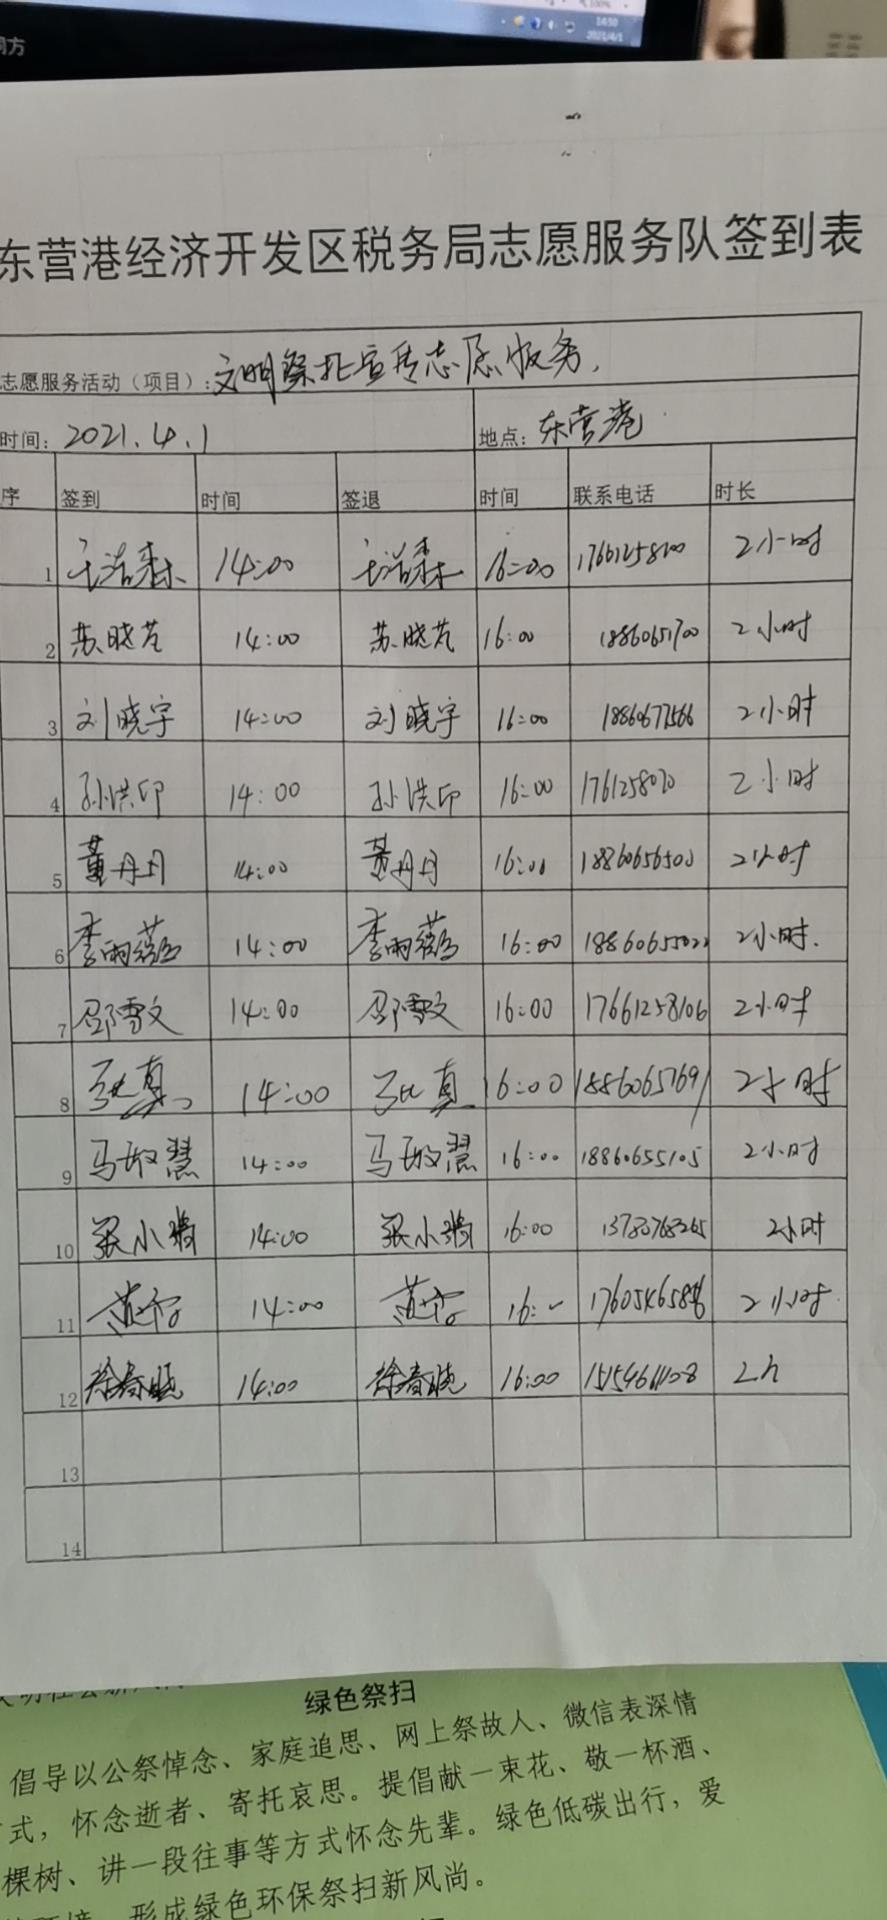 同方
100%
14:50
2021/4/1
东营港经济开发区税务局志愿服务队签到表
志愿服务活动（项目）：文明祭扫宣传志愿服务.
时间：2021.4.1 地点：东营港
序 签到 时间 签退 时间 联系电话 时长
1 14:00 16:00 2小时
2 苏晓芃 14:00 苏晓芃 16:00 18860651700 2小时
3 刘晓宇 14:00 刘晓宇 16:00 18860677566 2小时
4 孙洪印 14:00 孙洪印 16:00 2小时
5 董丹丹 14:00 董丹丹 16:00 18860656500 2小时
6 李雨蕴 14:00 李雨蕴 16:00 18860655022 2小时.
7 邵雪文 14:00 邵雪文 16:00 17661258106 2小时
8 张真 14:00 张真 16:00 18860657691 2小时
9 马敏慧 14:00 马敏慧 16:00 18860655105 2小时
10 张小 14:00 张小 16:00 13780768265 2小时
11 14:00 16: 2小时
12 徐春晓 14:00 徐春晓 16:00 2h
13
14
绿色祭扫
倡导以公祭悼念、家庭追思、网上祭故人、微信表深情
式，怀念逝者、寄托哀思。提倡献一束花、敬一杯酒、
棵树、讲一段往事等方式怀念先辈。绿色低碳出行，爱
环境，形成绿色环保祭扫新风尚。